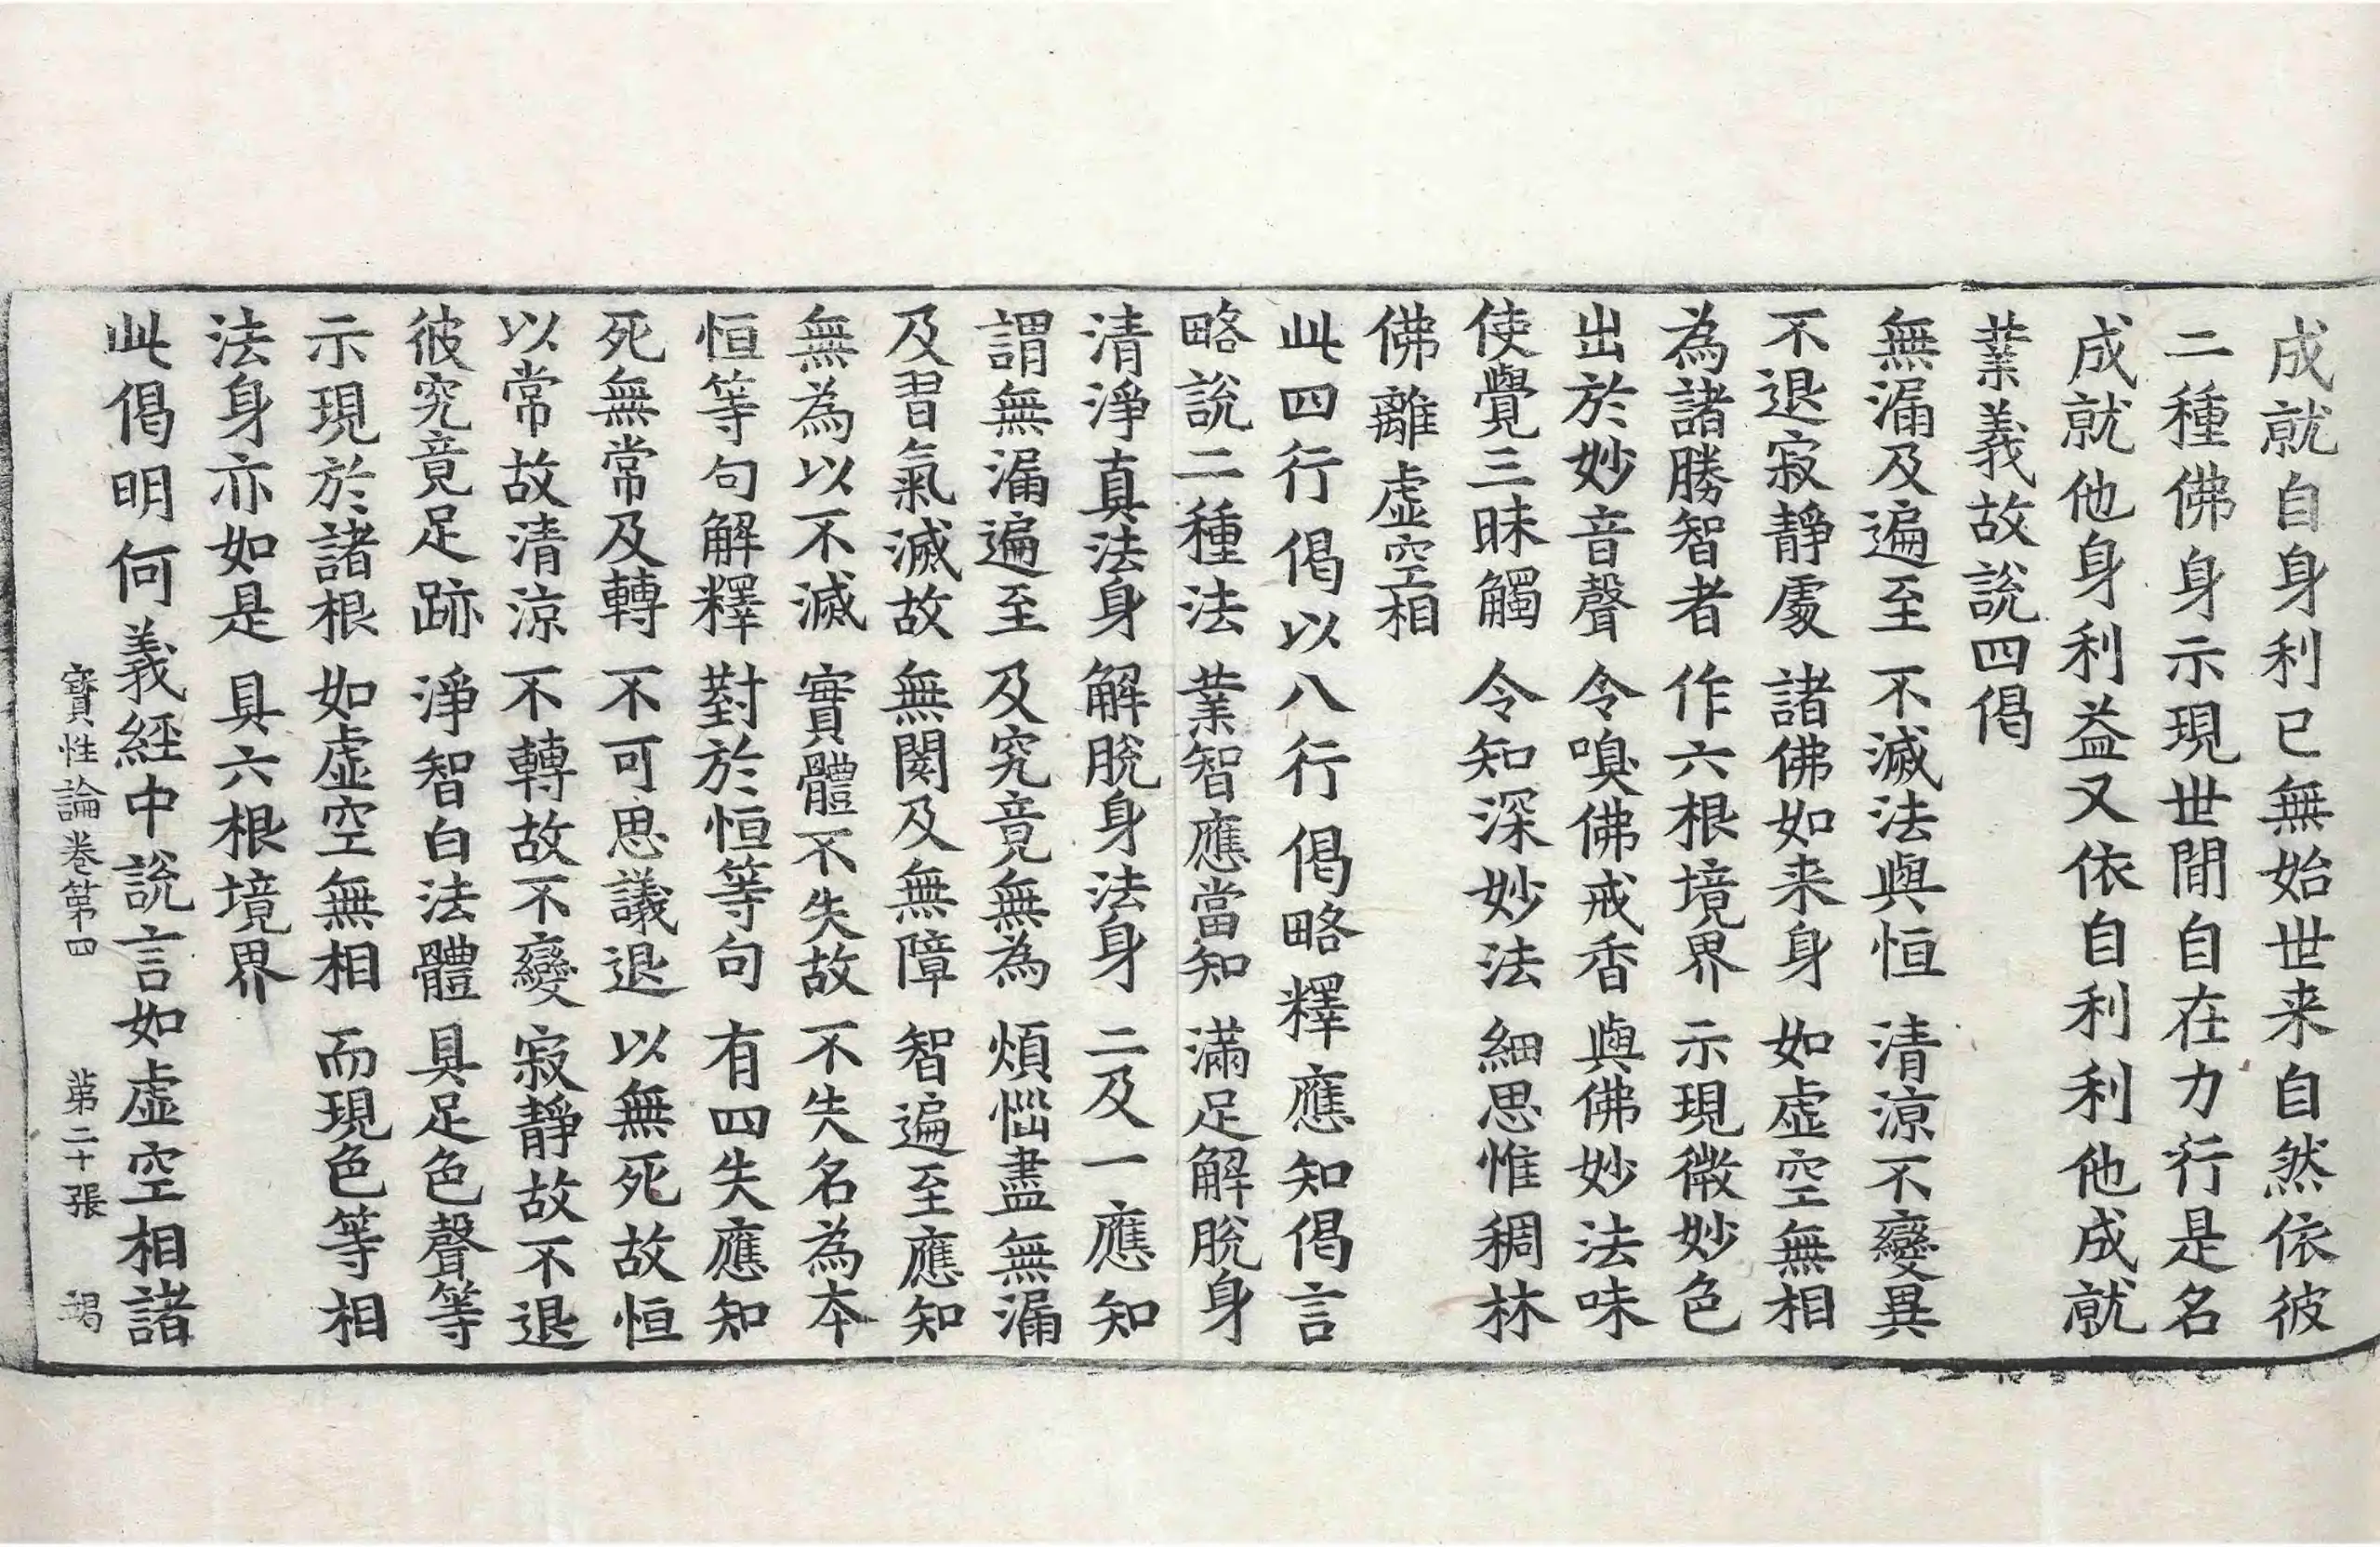 成就自身利已無始世来自然依彼
二種佛身示現世間自在力行是名
成就他身利益又依自利利他成就
業義故說四偈
無漏及遍至 不滅法與恒 清涼不變異
不退寂靜處 諸佛如来身 如虛空無相
為諸勝智者 作六根境界 示現微妙色
出於妙音聲 令嗅佛戒香 與佛妙法味
使覺三昧觸 令知深妙法 細思惟稠林
佛離虛空相
此四行偈以八行偈略釋應知偈言
略說二種法 業智應當知 滿足解脫身
清淨真法身 解脫身法身 二及一應知
謂無漏遍至 及究竟無為 煩惱盡無漏
及習氣滅故 無閡及無障 智遍至應知
無為以不滅 實體不失故 不失名為本
恒等句解釋 對於恒等句 有四失應知
死無常及轉 不可思議退 以無死故恒
以常故清涼 不轉故不變 寂靜故不退
彼究竟足跡 淨智白法體 具足色聲等
示現於諸根 如虛空無相 而現色等相
法身亦如是 具六根境界
此偈明何義經中說言如虛空相諸
寶性論卷第四 第二十張 竭